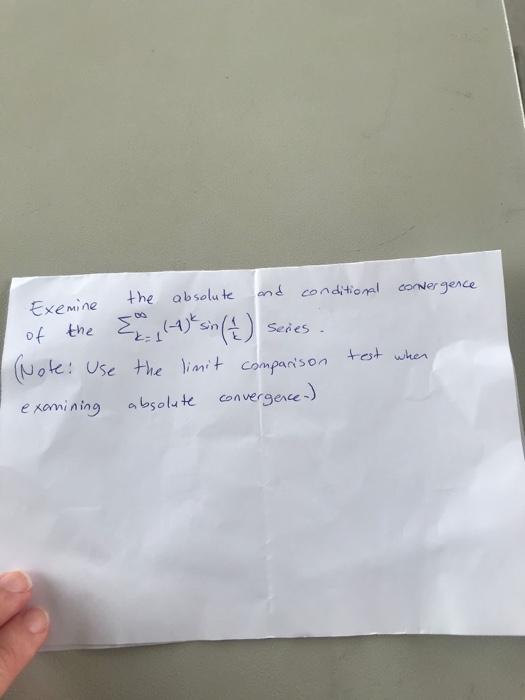 Exemine the absolute and conditional convergence
of the ∑_{k=1}^{∞} (-1)^k sin(1/k) series.
(Note: Use the limit comparison test when
examining absolute convergence.)